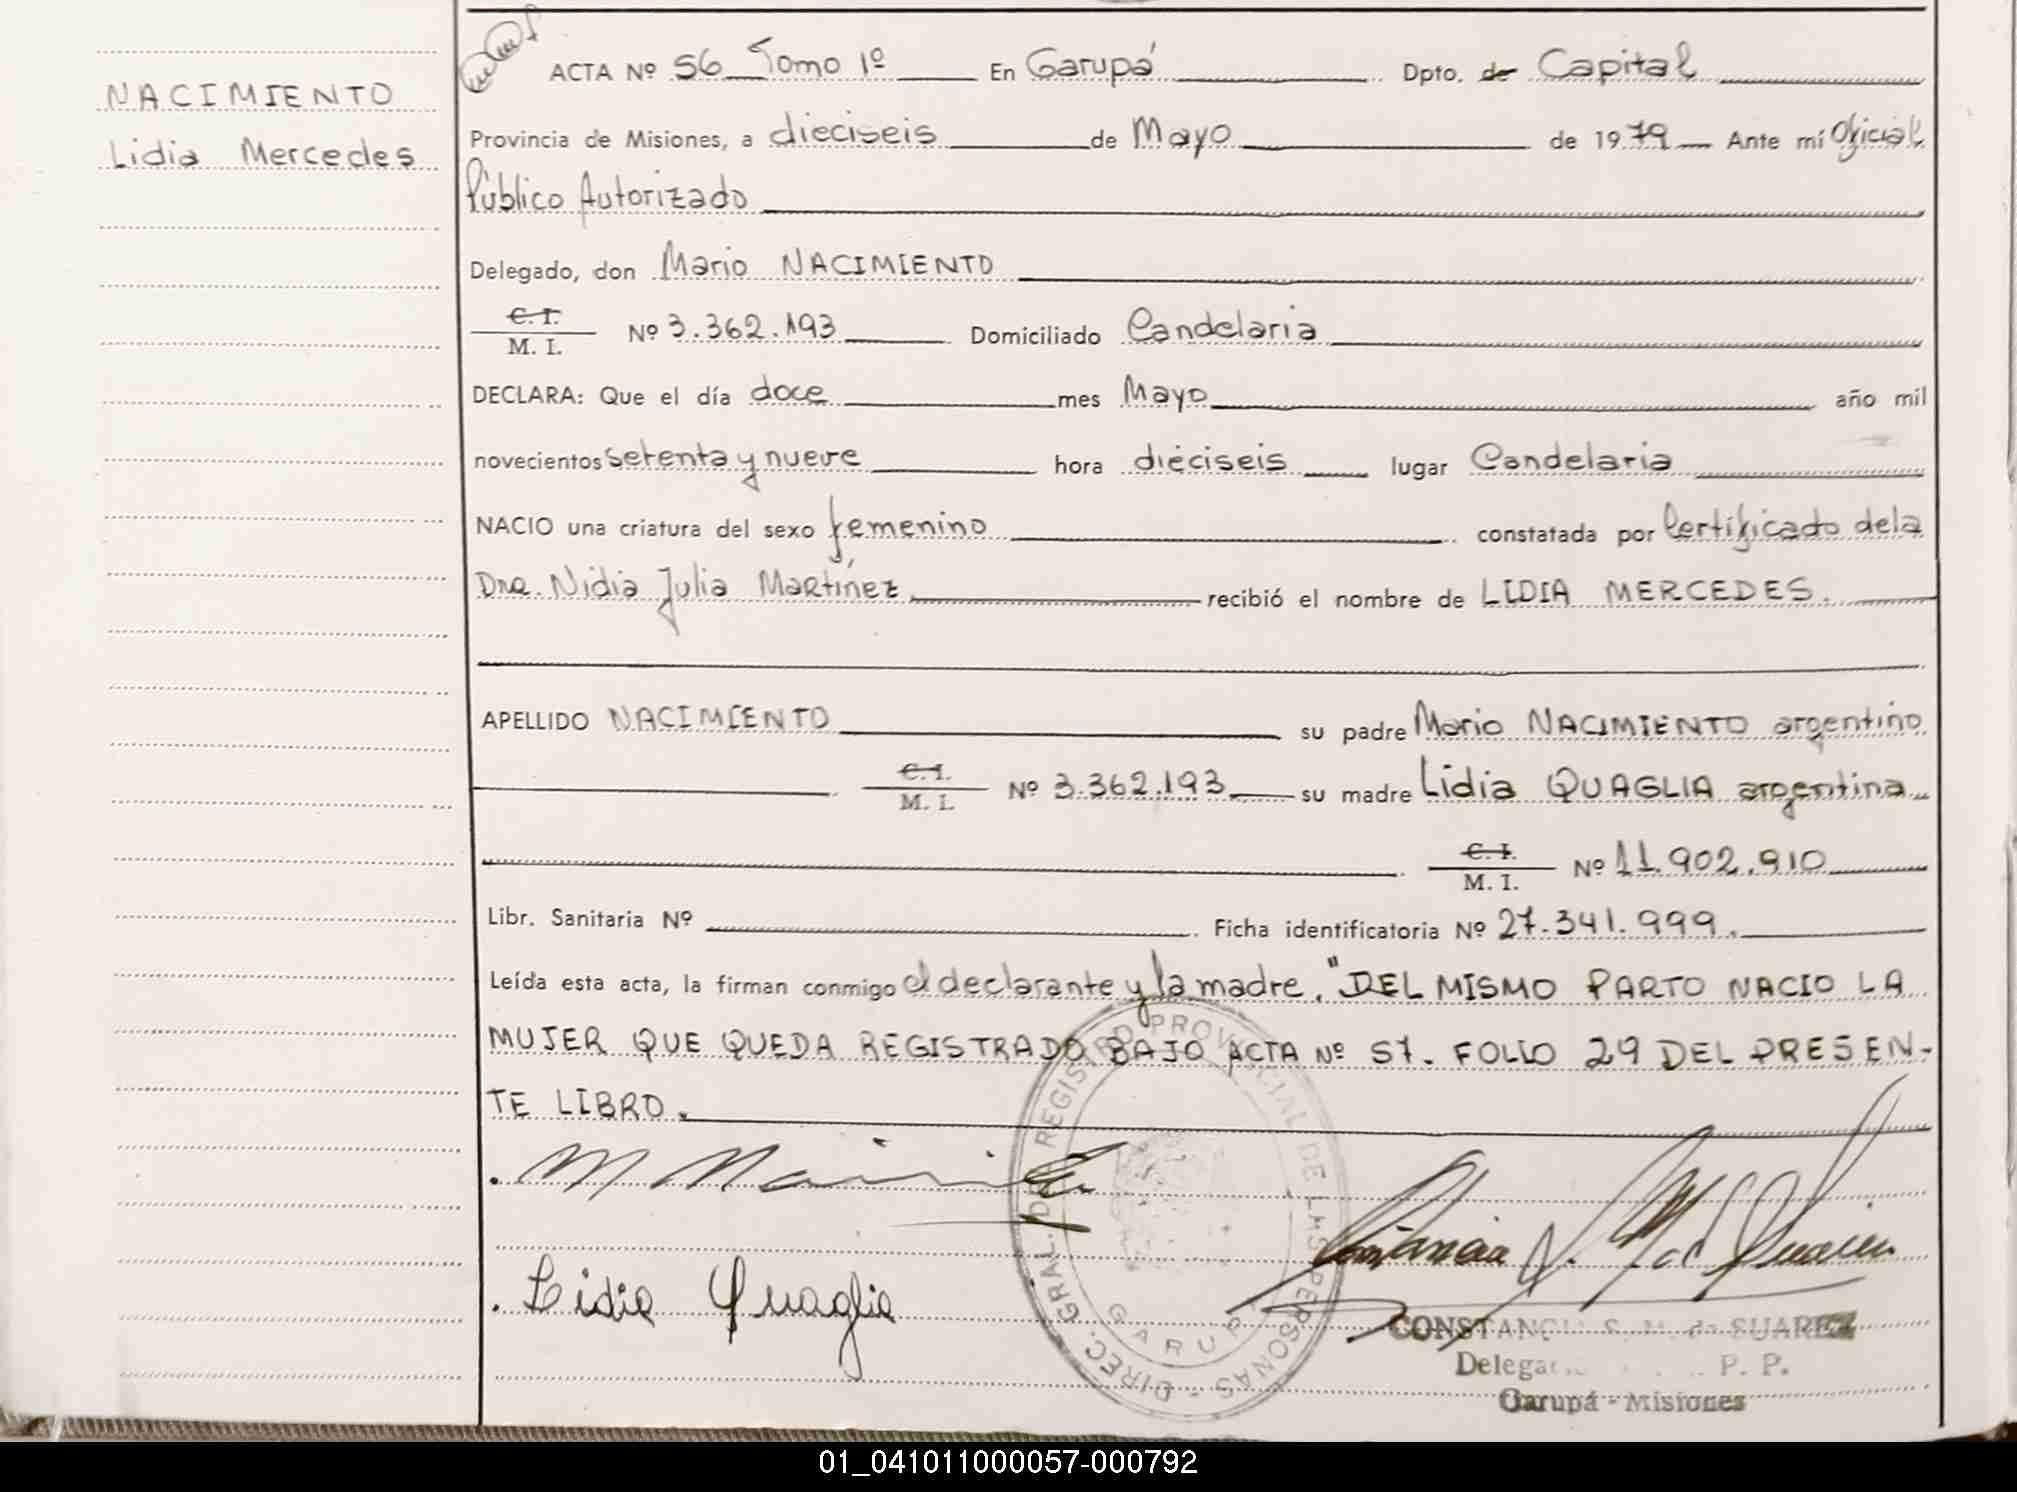 NACIMIENTO
Lidia Mercedes
ACTA Nº 56 Tomo 1º En Garupá Dpto. de Capital
Provincia de Misiones, a dieciseis de Mayo de 1979 Ante mí Oficial
Público Autorizado
Delegado, don Mario NACIMIENTO
C. I.
M. I. Nº 3.362.193 Domiciliado Candelaria
DECLARA: Que el día doce mes Mayo año mil
novecientos setenta y nueve hora dieciseis lugar Candelaria
NACIO una criatura del sexo femenino constatada por Certificado de la
Dra. Nidia Julia Martínez recibió el nombre de LIDIA MERCEDES.
APELLIDO NACIMIENTO su padre Mario NACIMIENTO argentino
C. I.
M. I. Nº 3.362.193 su madre Lidia QUAGLIA argentina
C. I.
M. I. Nº 11.902.910
Libr. Sanitaria Nº Ficha identificatoria Nº 27.341.999.
Leída esta acta, la firman conmigo el declarante y la madre. "DEL MISMO PARTO NACIO LA
MUJER QUE QUEDA REGISTRADO BAJO ACTA Nº 57. FOLIO 29 DEL PRESEN-
TE LIBRO.
Lidia Quaglia
DIREC. GRAL. DEL REGISTRO PROVINCIAL DE LAS PERSONAS -
GARUPA
CONSTANCIA S. M. de SUAREZ
P. P.
Garupá - Misiones
01_041011000057-000792